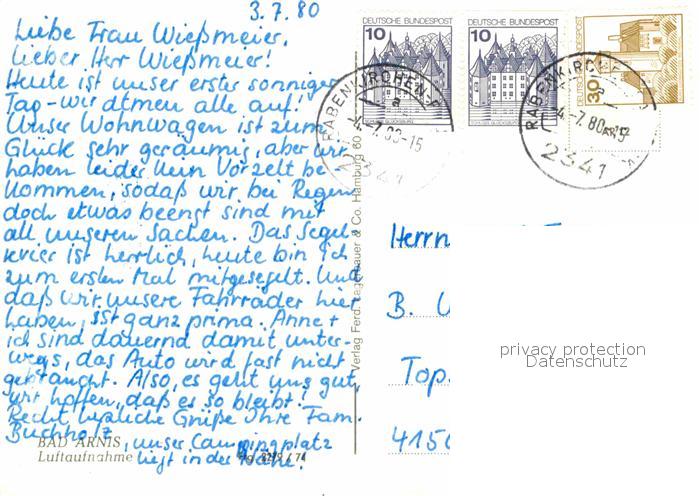 3.7.80
Liebe Frau Wießmeier,
lieber Herr Wießmeier!
Heute ist unser erster sonniger
Tag - wir atmen alle auf!
Unser Wohnwagen ist zum
Glück sehr geräumig, aber wir
haben leider kein Vorzelt be
kommen, sodaß wir bei Regen
doch etwas beengt sind mit
all unseren Sachen. Das Segel-
revier ist herrlich, heute bin ich
zum ersten Mal mitgesegelt. Und
daß wir unsere Fahrräder hier
haben, ist ganz prima. Anne +
ich sind dauernd damit unter-
wegs, das Auto wird fast nicht
gebraucht. Also, es geht uns gut,
wir hoffen, daß es so bleibt!
Recht herzliche Grüße Ihre Fam.
Buchholz, unser Campingplatz
liegt in der Nähe!
BAD ARNIS
Luftaufnahme
Verlag Ferd. Lagerbauer & Co. Hamburg 60
DEUTSCHE BUNDESPOST
10
DEUTSCHE BUNDESPOST
10
DEUTSCHE BUNDESPOST
30
RABENKIRCHEN-F
a
-4.-7.80-15
2341
RABENKIRCHE
a
-4.-7.80-15
2341
Herrn
B.
Top
415
privacy protection
Datenschutz